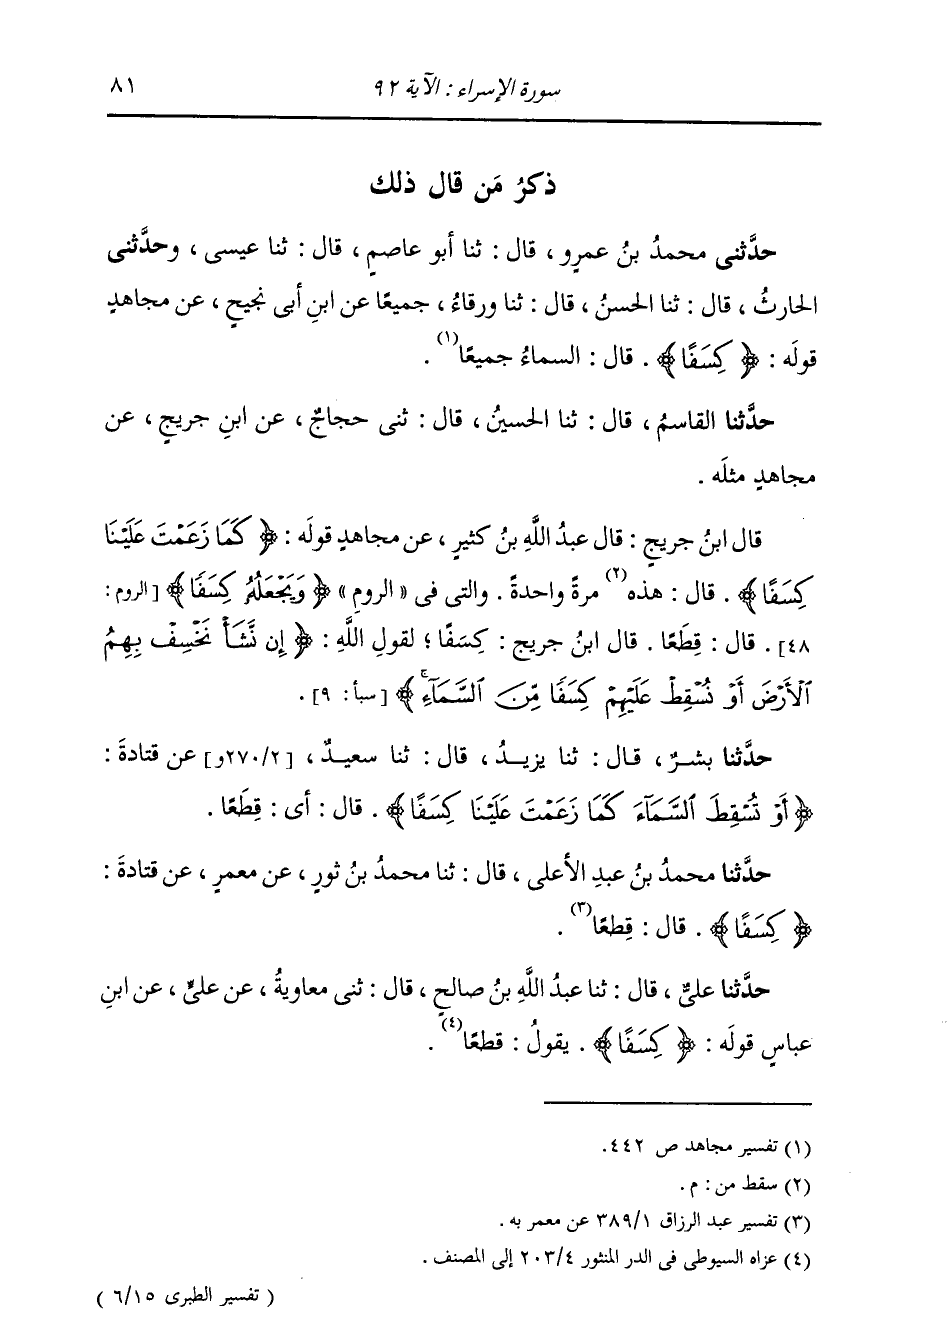 سورة الإسراء : الآية ٩٢
٨١
ذكرُ مَن قال ذلك
حدَّثنى محمدُ بنُ عمرٍو ، قال : ثنا أبو عاصمٍ ، قال : ثنا عيسى ، وحدَّثنى
الحارثُ ، قال : ثنا الحسنُ ، قال : ثنا ورقاءُ ، جميعًا عن ابنِ أبى نجيحٍ ، عن مجاهدٍ
قولَه : ﴿ كِسَفًا ﴾ . قال : السماءُ جميعًا(١) .
حدَّثنا القاسمُ ، قال : ثنا الحسينُ ، قال : ثنى حجاجٌ ، عن ابنِ جريجٍ ، عن
مجاهدٍ مثلَه .
قال ابنُ جريجٍ : قال عبدُ اللَّهِ بنُ كثيرٍ ، عن مجاهدٍ قولَه : ﴿ كَمَا زَعَمْتَ عَلَيْنَا
كِسَفًا ﴾ . قال : هذه(٢) مرةً واحدةً . والتى فى « الرومِ » ﴿ وَيَجْعَلُهُ كِسَفًا ﴾ [ الروم :
٤٨] . قال : قِطَعًا . قال ابنُ جريجٍ : كِسَفًا ؛ لقولِ اللَّهِ : ﴿ إِن نَّشَأْ نَخْسِفْ بِهِمُ
الْأَرْضَ أَوْ نُسْقِطْ عَلَيْهِمْ كِسَفًا مِّنَ السَّمَآءِ ﴾ [ سبأ : ٩] .
حدَّثنا بشرٌ ، قال : ثنا يزيدُ ، قال : ثنا سعيدٌ ، [٢٧٠/٢و] عن قتادةَ :
﴿ أَوْ تُسْقِطَ السَّمَآءَ كَمَا زَعَمْتَ عَلَيْنَا كِسَفًا ﴾ . قال : أى : قِطَعًا .
حدَّثنا محمدُ بنُ عبدِ الأعلى ، قال : ثنا محمدُ بنُ ثورٍ ، عن معمرٍ ، عن قتادةَ :
﴿ كِسَفًا ﴾ . قال : قِطعًا(٣) .
حدَّثنا علىٌّ ، قال : ثنا عبدُ اللَّهِ بنُ صالحٍ ، قال : ثنى معاويةُ ، عن علىٍّ ، عن ابنِ
عباسٍ قولَه : ﴿ كِسَفًا ﴾ . يقولُ : قطعًا(٤) .
(١) تفسير مجاهد ص ٤٤٢.
(٢) سقط من : م .
(٣) تفسير عبد الرزاق ٣٨٩/١ عن معمر به .
(٤) عزاه السيوطى فى الدر المنثور ٢٠٣/٤ إلى المصنف .
( تفسير الطبرى ٦/١٥ )